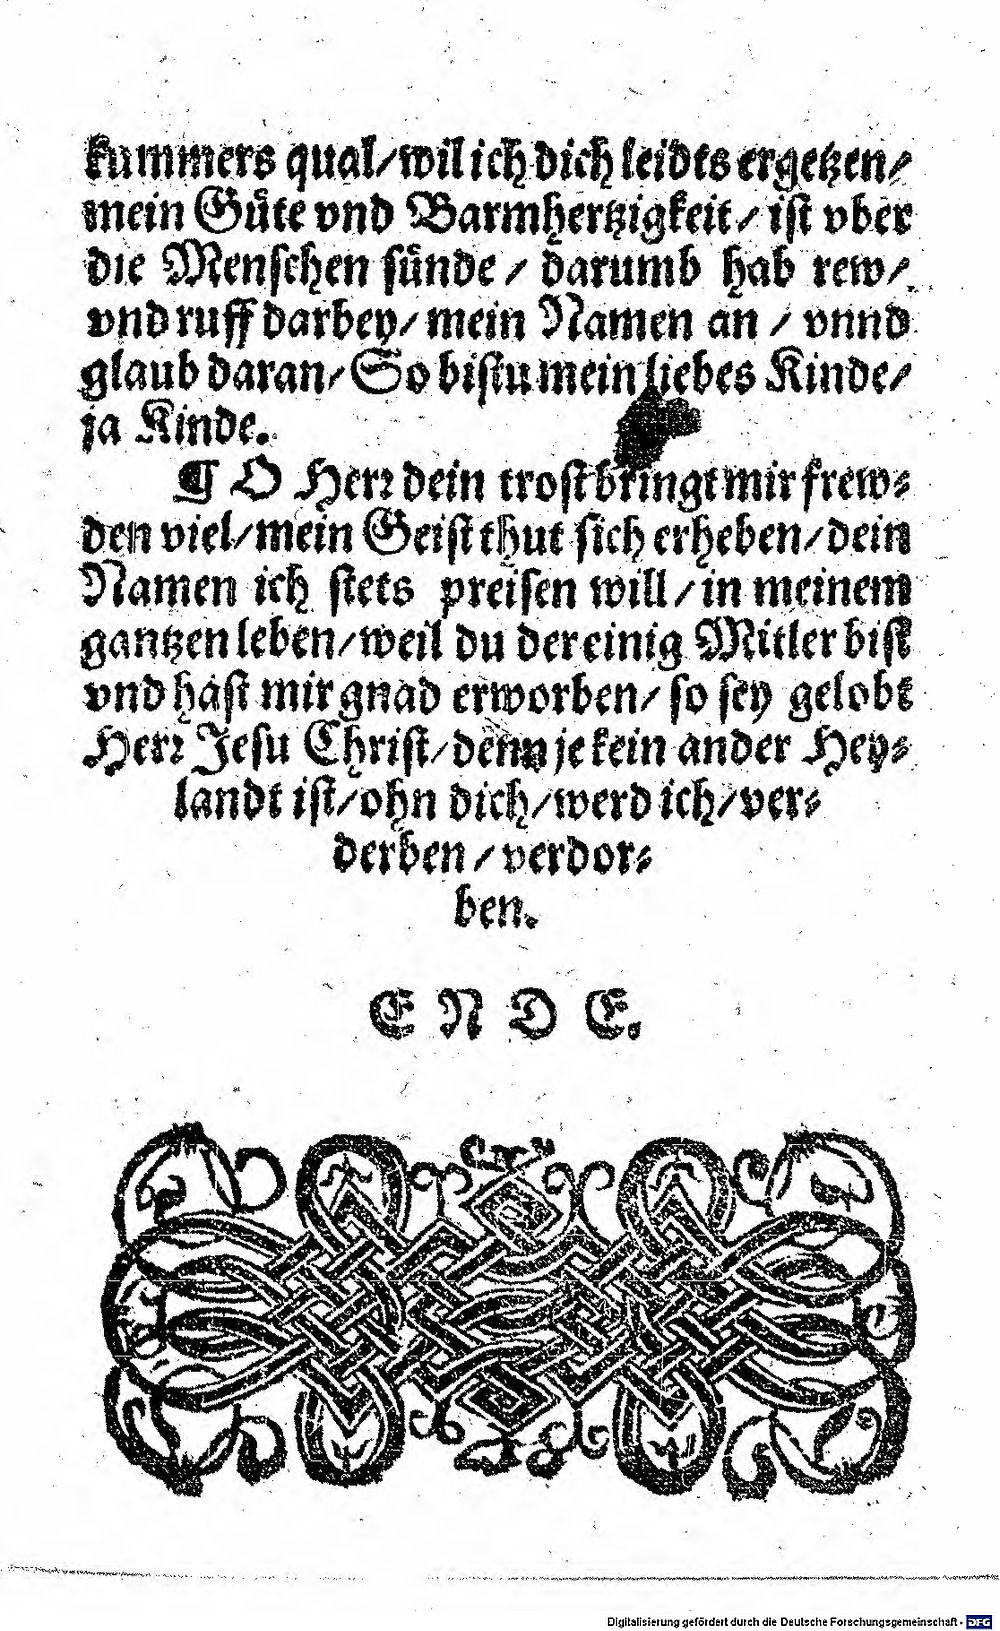 kummers qual/wil ich dich leidts ergetzen/
mein Güte vnd Barmhertzigkeit/ ist vber
die Menschen sünde / darumb hab rew/
vnd ruff darbey/ mein Namen an / vnnd
glaub daran/ So bistu mein liebes Kinde/
ja Kinde.
¶ O Herr dein trost bringt mir frew⸗
den viel/mein Geist thut sich erheben/dein
Namen ich stets preisen will/in meinem
gantzen leben/weil du der einig Mitler bist
vnd hast mir gnad erworben/ so sey gelobt
Herr Jesu Christ/denn je kein ander Hey⸗
landt ist/ohn dich/werd ich/ver⸗
derben / verdor⸗
ben.
E N D E.
Digitalisierung gefördert durch die Deutsche Forschungsgemeinschaft - DFG